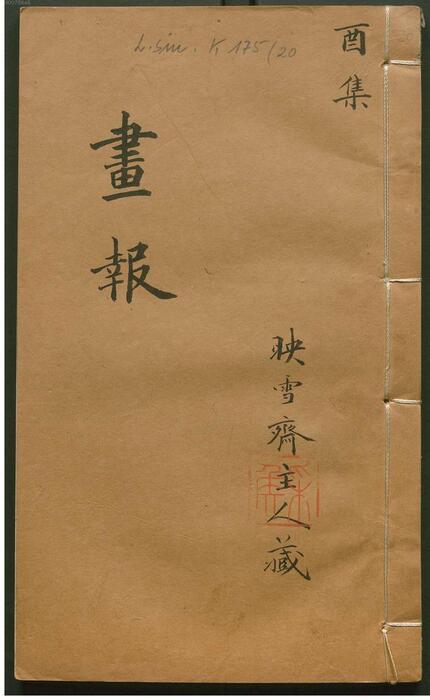 L. sin. K 175/20
酉集
畫報
映雪齋主人藏